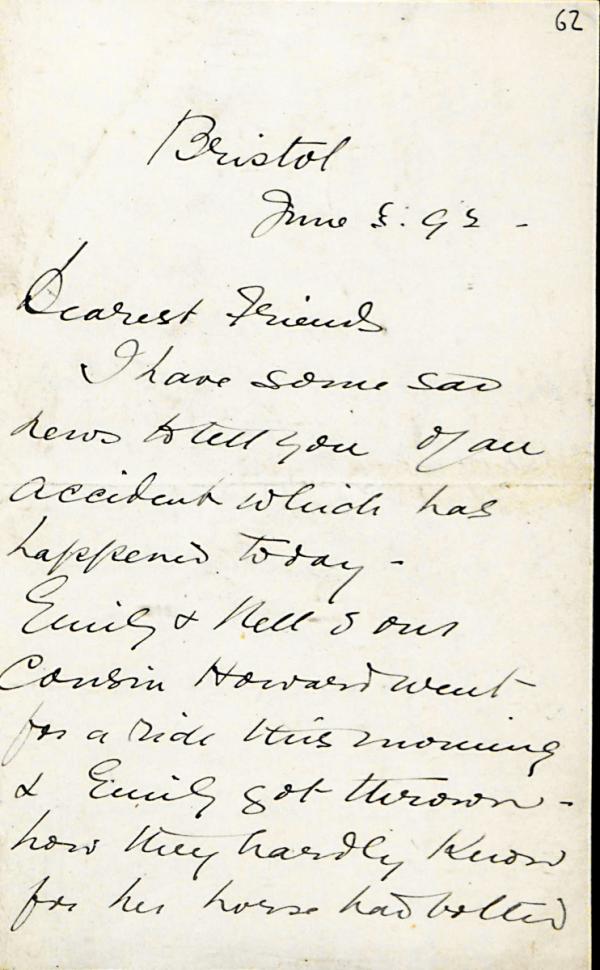 62
Bristol
June 3: 93 -
Dearest Friends
I have some sad
news to tell you of an
accident which has
happened today -
Emily & Nell & our
Cousin Howard went
for a ride this morning
& Emily got thrown -
how they hardly know
for her horse had bolted